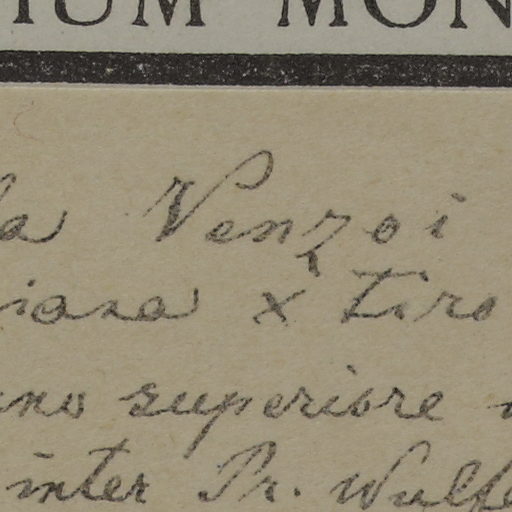 IUM MON
la Venzoi
iasa x Tiro
ano superiore
inter Pr. Wulfe